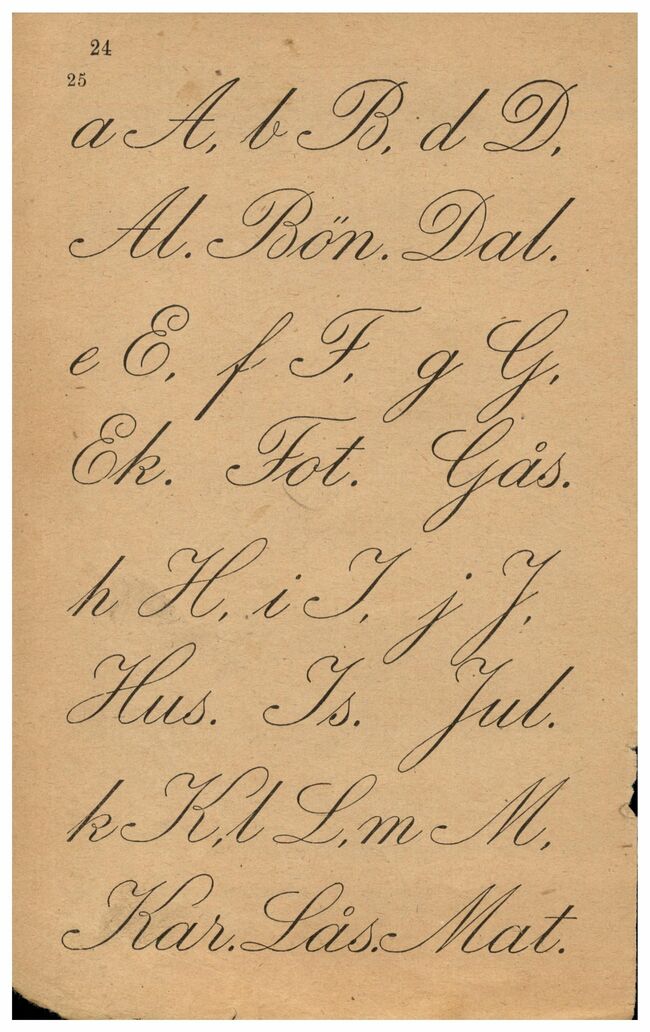 24
25
a A, b B, d D,
Al. Bön. Dal.
e E, f F, g G,
Ek. Fot. Gås.
h H, i I, j J,
Hus. Is. Jul.
k K, l L, m M,
Kar. Lås. Mat.